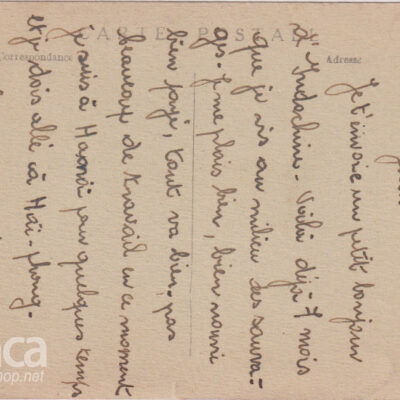 CARTE POSTALE
Correspondance
Adresse
Je t'envoie un petit bonjour
d'Indochine. Voilà déjà 7 mois
que je vis au milieu des sauva-
ges. Je me plais bien, bien nourri
bien payé, tout va bien. pas
beaucoup de travail en ce moment
je suis à Hanoï pour quelques temps
et je dois allé à Haï-phong.
nca
op.net